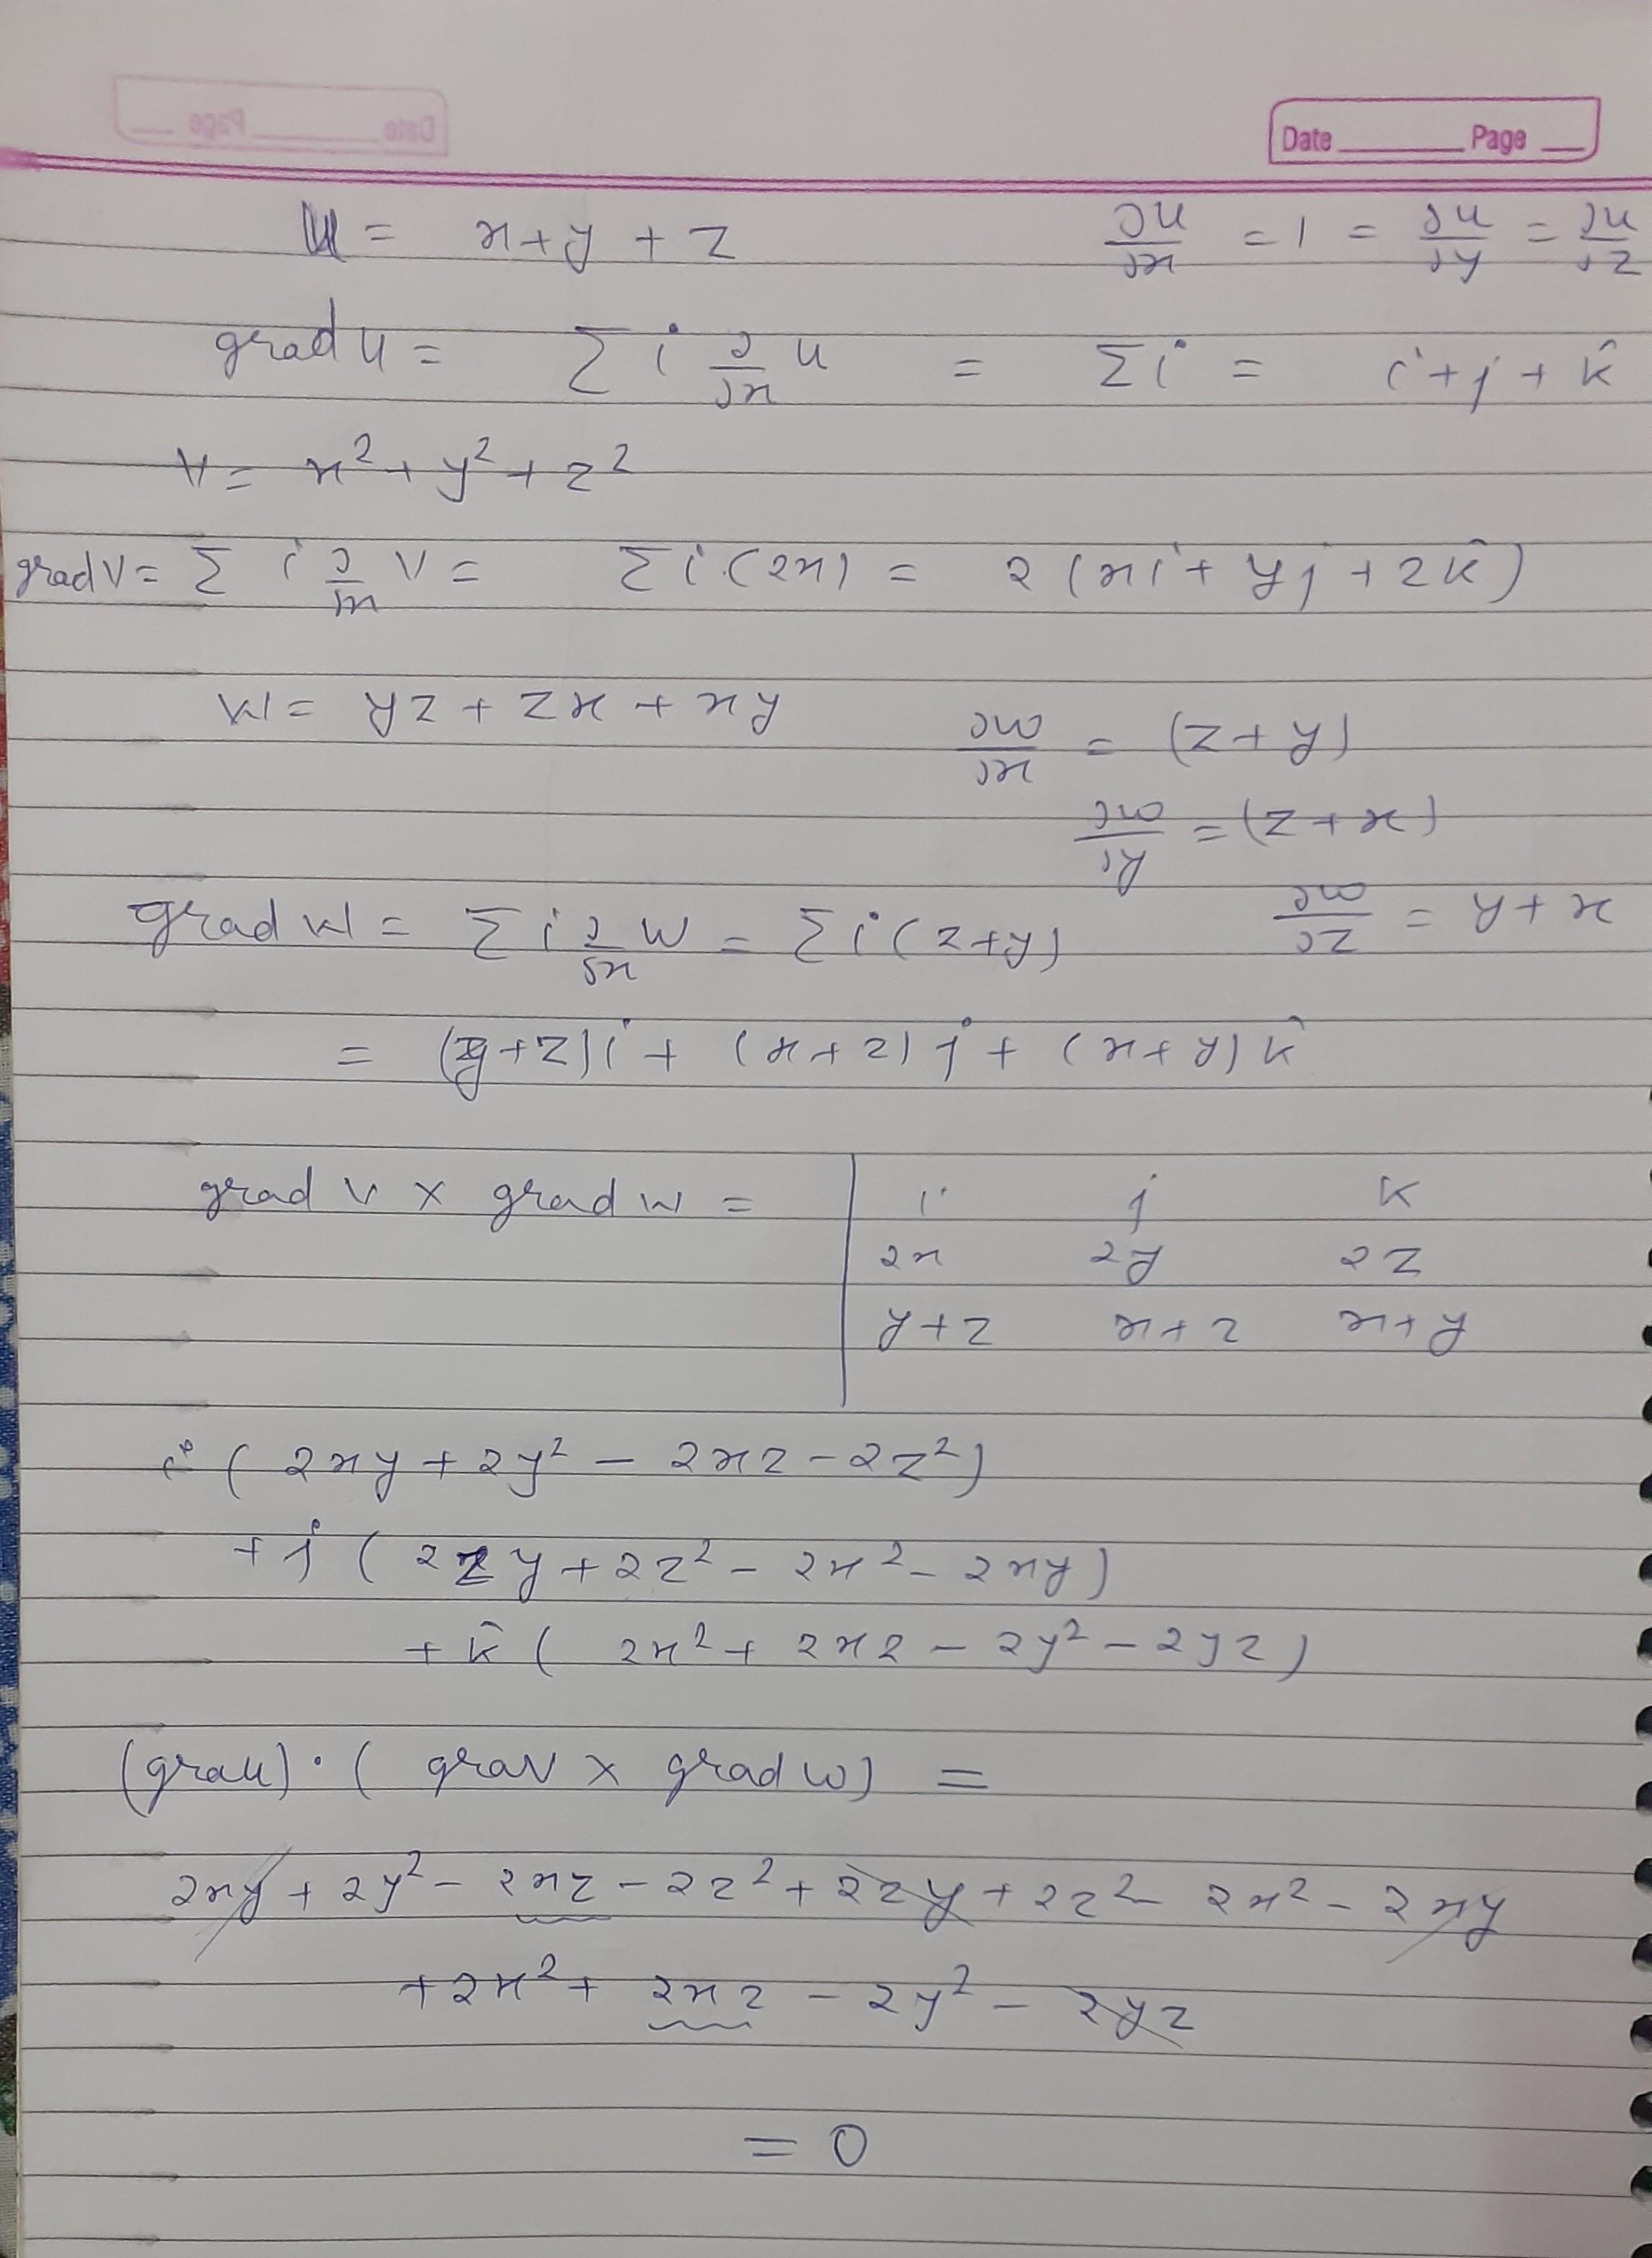 Date Page
u = x+y+z ∂u/∂x = 1 = ∂u/∂y = ∂u/∂z
grad u = Σ i ∂/∂x u = Σi = i+j+k̂
v = x²+y²+z²
grad v = Σ i ∂/∂x v = Σi(2x) = 2(xi+yj+zk̂)
w = yz+zx+xy ∂w/∂x = (z+y)
∂w/∂y = (z+x)
grad w = Σ i ∂/∂x w = Σi(z+y) ∂w/∂z = y+x
= (y+z)i + (x+z)j + (x+y)k̂
grad v × grad w = | i j k
2x 2y 2z
y+z x+z x+y
i(2xy+2y²-2xz-2z²)
+j(2zy+2z²-2x²-2xy)
+k̂(2x²+2xz-2y²-2yz)
(grau)·(grav × grad w) =
2xy+2y²-2xz-2z²+2zy+2z²-2x²-2xy
+2x²+2xz-2y²-2yz
= 0